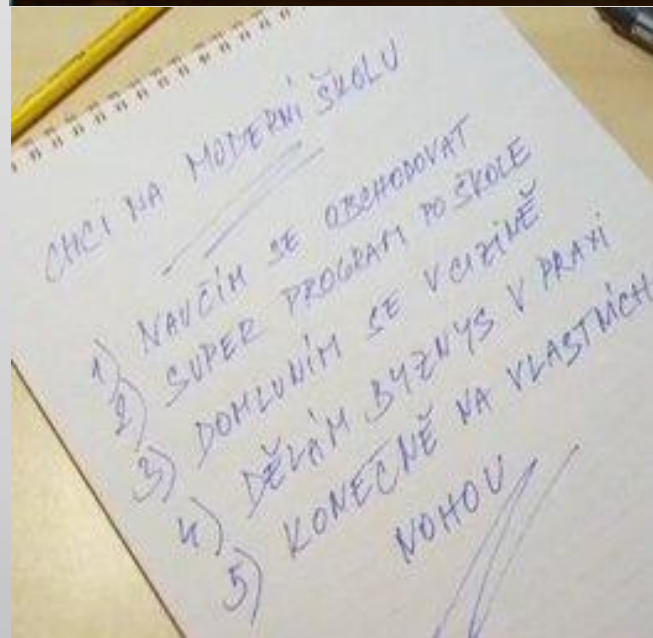 CHCI NA MODERNÍ ŠKOLU
1) NAUČÍM SE OBCHODOVAT
2) SUPER PROGRAM PO ŠKOLE
3) DOMLUVÍM SE V CIZINĚ
4) DĚLÁM BYZNYS V PRAXI
5) KONEČNĚ NA VLASTNÍCH
NOHOU